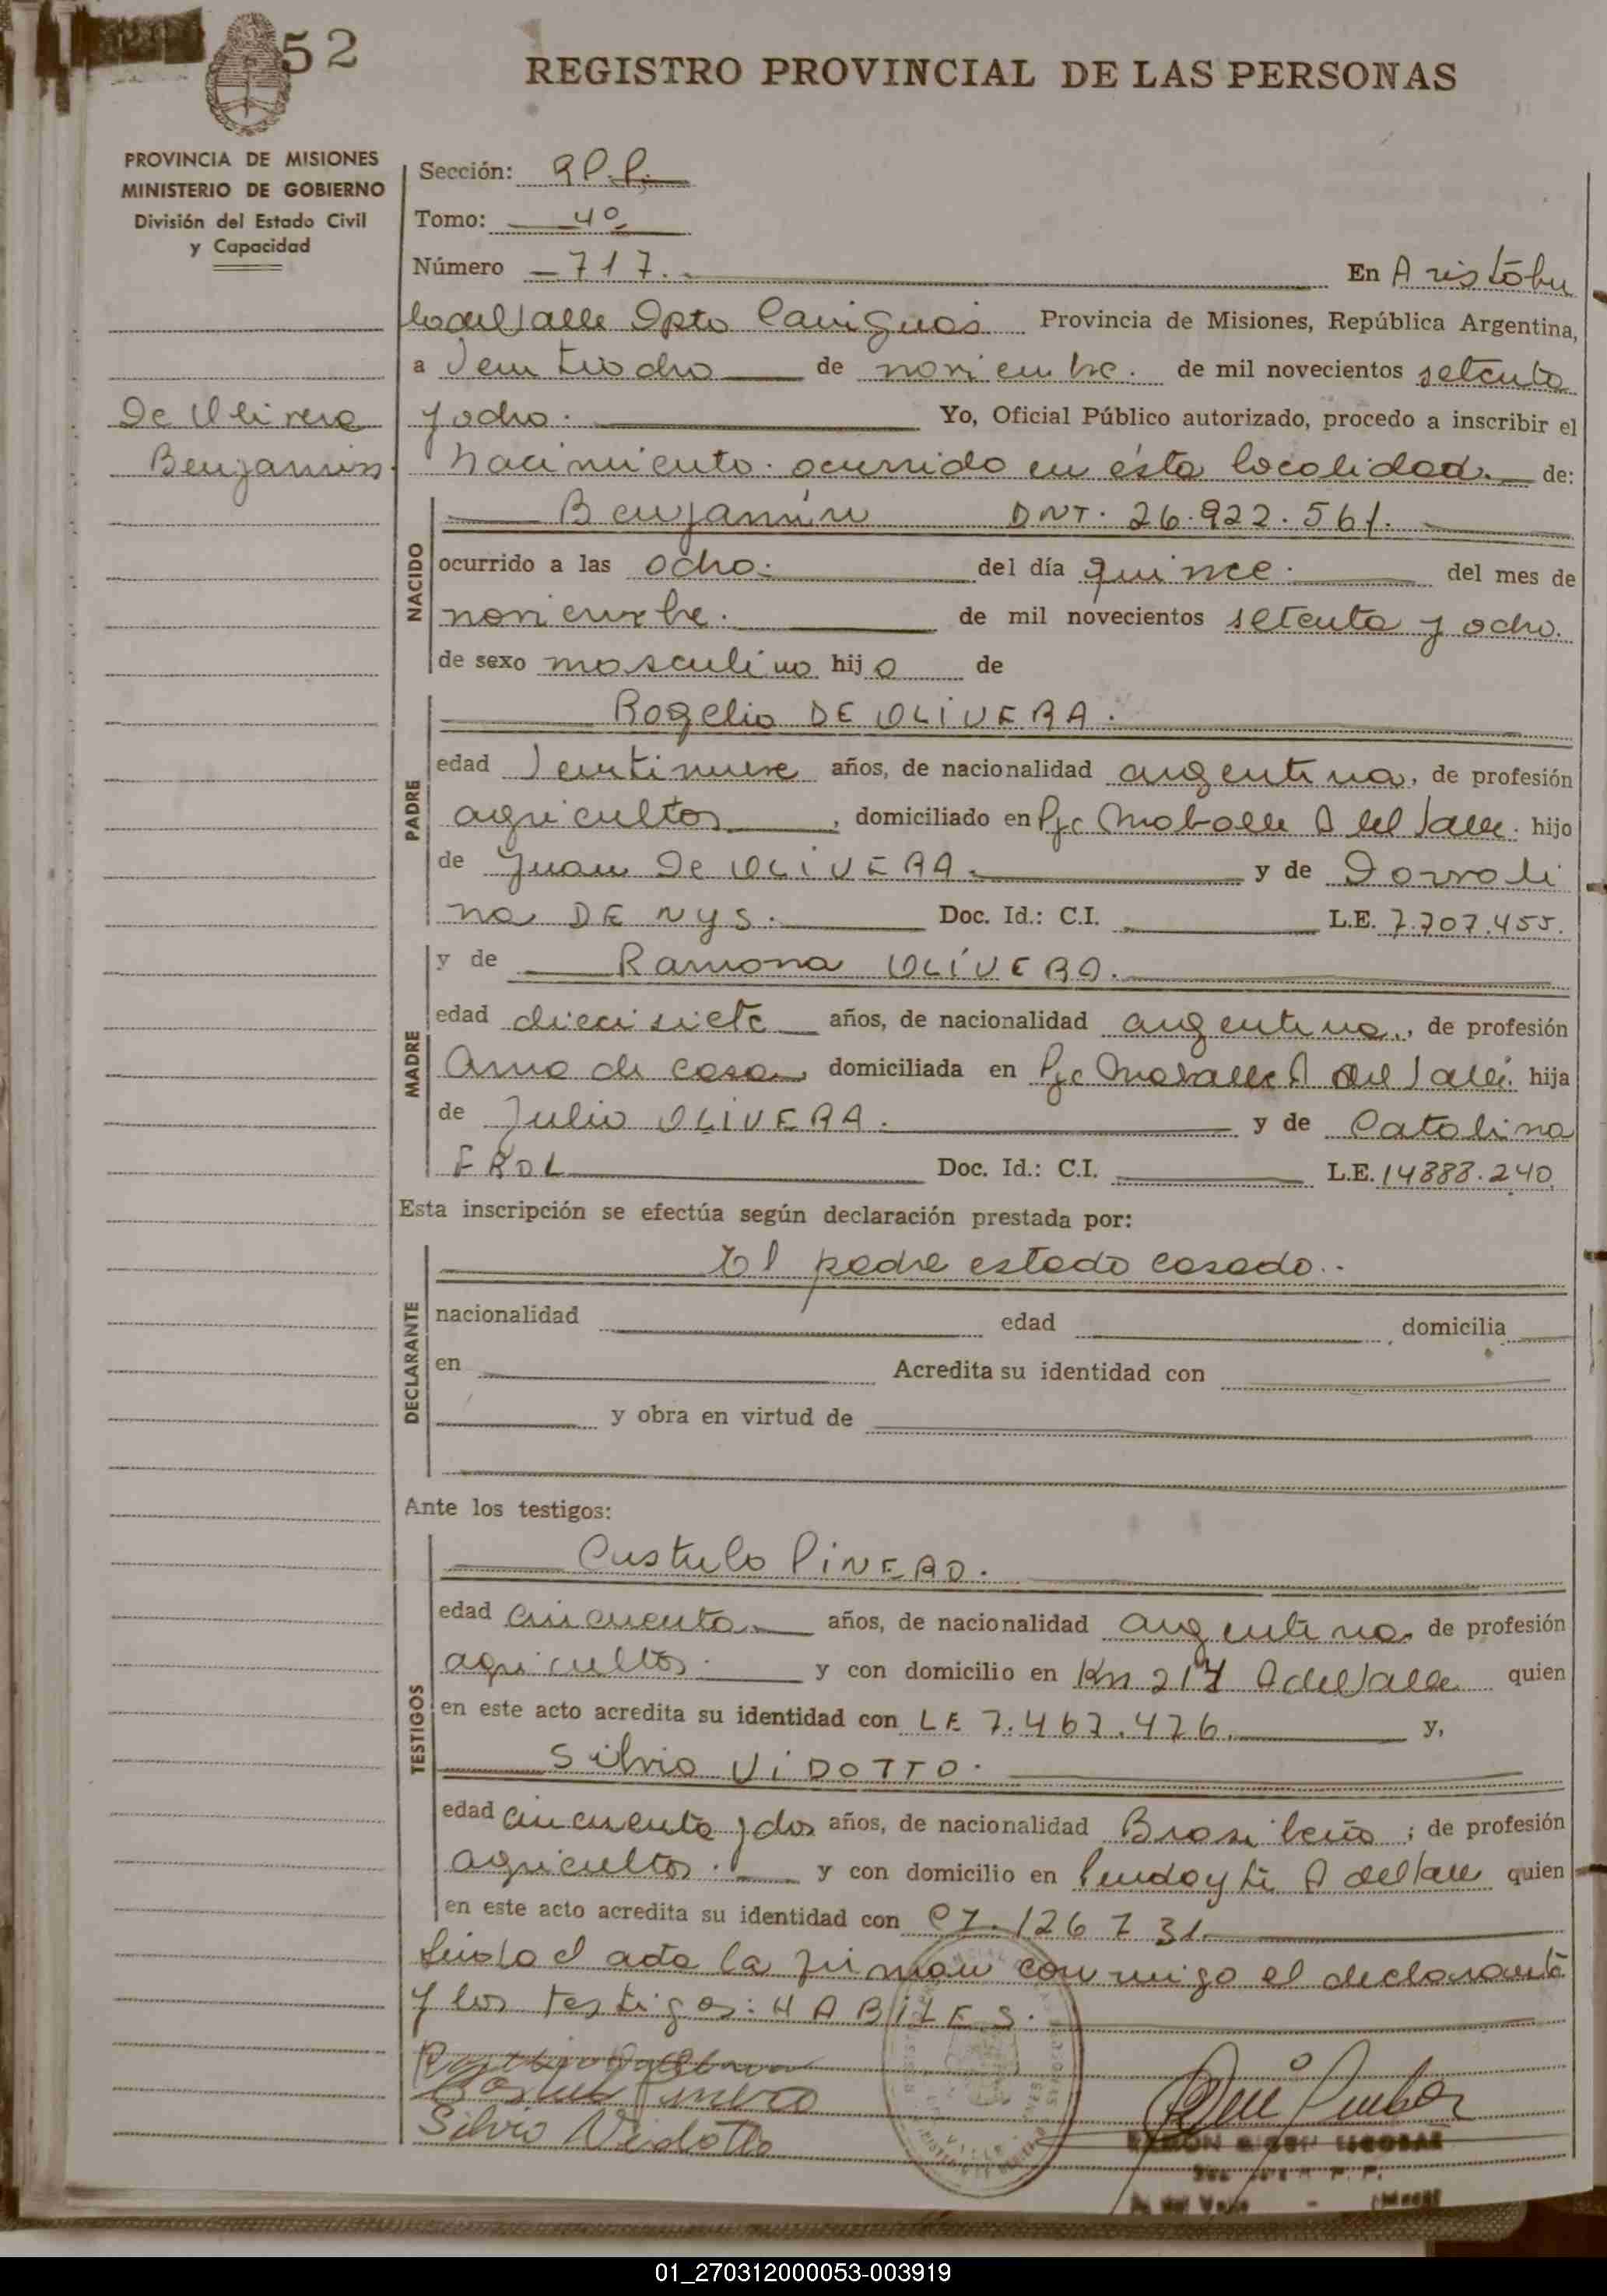 52
REGISTRO PROVINCIAL DE LAS PERSONAS
PROVINCIA DE MISIONES
MINISTERIO DE GOBIERNO
División del Estado Civil
y Capacidad
De Olivera
Benjamin
Sección:
Tomo: 4º
Número 717. En Aristóbu
lo del Valle Dpto Cainguas Provincia de Misiones, República Argentina,
a Veintiocho de noviembre. de mil novecientos setenta
y ocho. Yo, Oficial Público autorizado, procedo a inscribir el
Nacimiento. ocurrido en ésta localidad. de:
NACIDO
Benjamín DNI. 26.922.561.
ocurrido a las ocho. del día quince. del mes de
noviembre. de mil novecientos setenta y ocho.
de sexo masculino hijo de
PADRE
Rogelio DE OLIVERA.
edad Veintinueve años, de nacionalidad argentina, de profesión
agricultor, domiciliado en Pje A del Valle. hijo
de Juan De OLIVERA. y de Dorrali
na DE NYS. Doc. Id.: C.I. L.E. 7.707.455.
MADRE
y de Ramona OLÍVERA.
edad diecisiete años, de nacionalidad argentina, de profesión
Ama de casa, domiciliada en Pje A del Valle. hija
de Julio OLIVERA. y de Catalina
EROL Doc. Id.: C.I. L.E. 14888.240
Esta inscripción se efectúa según declaración prestada por:
DECLARANTE
El padre estado casado.
nacionalidad edad , domicilia
en Acredita su identidad con
y obra en virtud de
Ante los testigos:
TESTIGOS
Custulo PIÑERO.
edad cincuenta años, de nacionalidad argentina, de profesión
agricultor. y con domicilio en Km 217 A del Valle quien
en este acto acredita su identidad con LE 7.467.476. y,
Silvio VIDOTTO.
edad cincuenta y dos años, de nacionalidad Brasileño ; de profesión
agricultor. y con domicilio en A del Valle quien
en este acto acredita su identidad con CI. 126731.
Leida el acta la firman conmigo el declarante
y los testigos: HABILES.
Silvio Vidotto
RAMON ESCOBAR
01_270312000053-003919